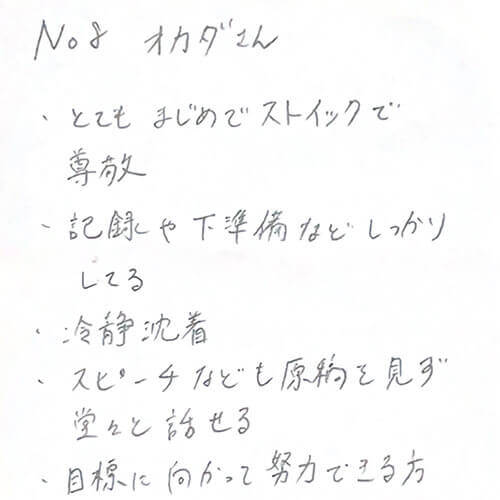 No8 オカダさん
・とても まじめでストイックで
尊敬
・記録や下準備などしっかり
してる
・冷静沈着
・スピーチなども原稿を見ず
堂々と話せる
・目標に向かって努力できる方